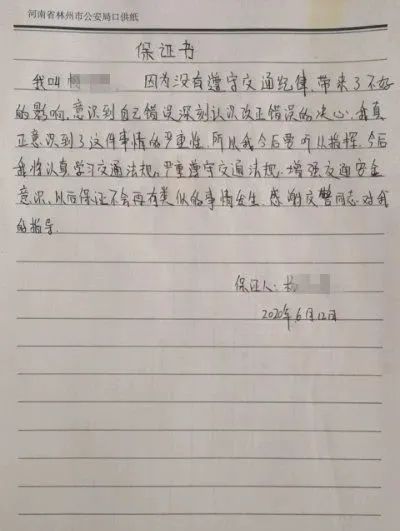 河南省林州市公安局口供纸
保证书
我叫 因为没有遵守交通纪律,带来了不好
的影响,意识到自己错误深刻认识改正错误的决心,我真
正意识到了这件事情的严重性,所以我今后要听从指挥,今后
我将认真学习交通法规,严重遵守交通法规,增强交通安全
意识,以后保证不会再有类似的事情发生,感谢交警同志,对我
的指导.
保证人:杨
2020年6月12日